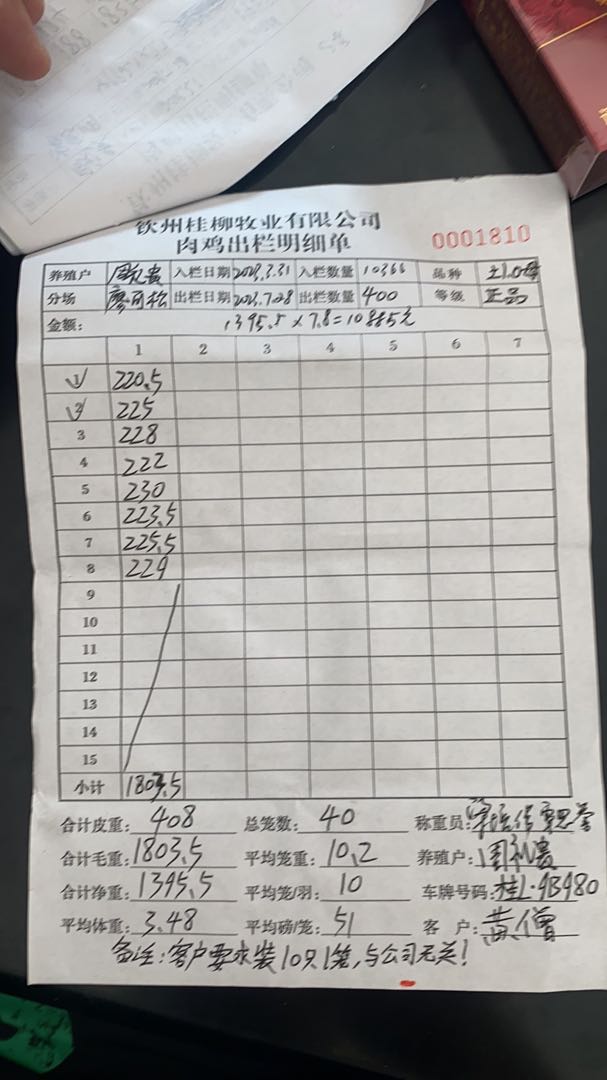 钦州桂柳牧业有限公司
肉鸡出栏明细单
0001810
养殖户 周礼贵 入栏日期 2023.3.31 入栏数量 10366 品种 土1.0母
分场 廖可松 出栏日期 2023.7.28 出栏数量 400 等级 正品
金额: 1395.5×7.8=10885元
1 2 3 4 5 6 7
1 220.5
2 225
3 228
4 222
5 230
6 223.5
7 225.5
8 229
9
10
11
12
13
14
15
小计 1803.5
合计皮重: 408 总笼数: 40 称重员:
合计毛重: 1803.5 平均笼重: 10.2 养殖户: 周礼贵
合计净重: 1395.5 平均笼/羽: 10 车牌号码: 桂L·9B980
平均体重: 3.48 平均磅/笼: 51 客 户: 黄僧
备注:客户要求装10只1笼,与公司无关!